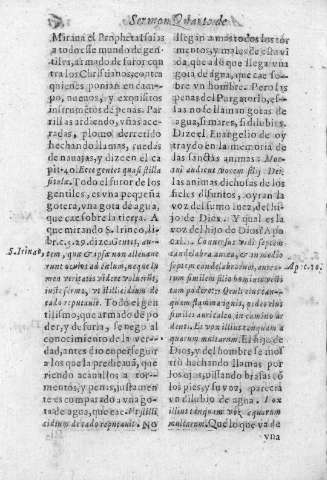 Sermon Quarto de
Mirana el Propheta Isaias
a todo esse mundo de gen-
tiles, armado de furor con
tra los Christianos, contra
quienes ponian en cam-
po, nueuos, y exquisitos
instrumentos de penas. Par
rillas ardiendo, vñas ace-
radas, plomo derretido
hechando llamas, ruedas
de nauajas, y dize en el ca
pit. 40. Ecce gentes quasi stilla
situla. Todo el furor de los
gentiles, es vna pequeña
gotera, vna gota de agua,
que cae sobre la tierra. A
que mirando S. Irineo, li-
br. c. 29. dize. Gentes, au-
S. Irineo,
tem, quæ & ipsæ non alleuaue
runt oculos ad cælum, neque lu
men veritatis videre voluerunt,
iuste sermo, vt stilicidium de
cado reputauit. Todo el gen
tilismo, que armado de po
der, y de furia, se nego al
conocimiento de la ver-
dad, antes dio en perseguir
a los que la predicauã, que
riendo acauallos a tor-
mentos, y penas, justamen
te es comparado a vna go-
ta de agua, que cae. Vt stilli
cidium de cado reputauit. No
llegan a mas todos los tor
mentos, y males de esta vi
da, que a lo que llega vna
gota de agua, que cae so-
bre vn hombre. Pero las
penas del Purgatorio, essas
no se llaman gotas de
agua, si mares, si diluuios.
Dize el Euangelio de oy
traydo en la memoria de
las sanctas animas: Mor-
tui audient vocem filij Dei:
las animas dichosas de los
fieles difuntos, oyran la
voz del sumo Iuez, del hi-
jo de Dios. Y qual es la
voz del hijo de Dios? Apo
c. 1. Conuersus vidi septem
candelabra aurea, & in medio
septem candelabrorum, aureo-
Apo. c. 10.
rum similem filio hominis vesti
tum podere:: oculi eius tanquam
quam flamma ignis, pedes eius
similes auricalco, in camino ar
denti. Et vox illius tanquam a
quarum multarum. El hijo de
Dios, y del hombre se mos
tró hechando llamas por
los ojos, pissando brasas có
los pies, y su voz, parecia
vn diluuio de agua. Vox
illius tanquam vox aquarum
multarum. Que lo que va de
vna